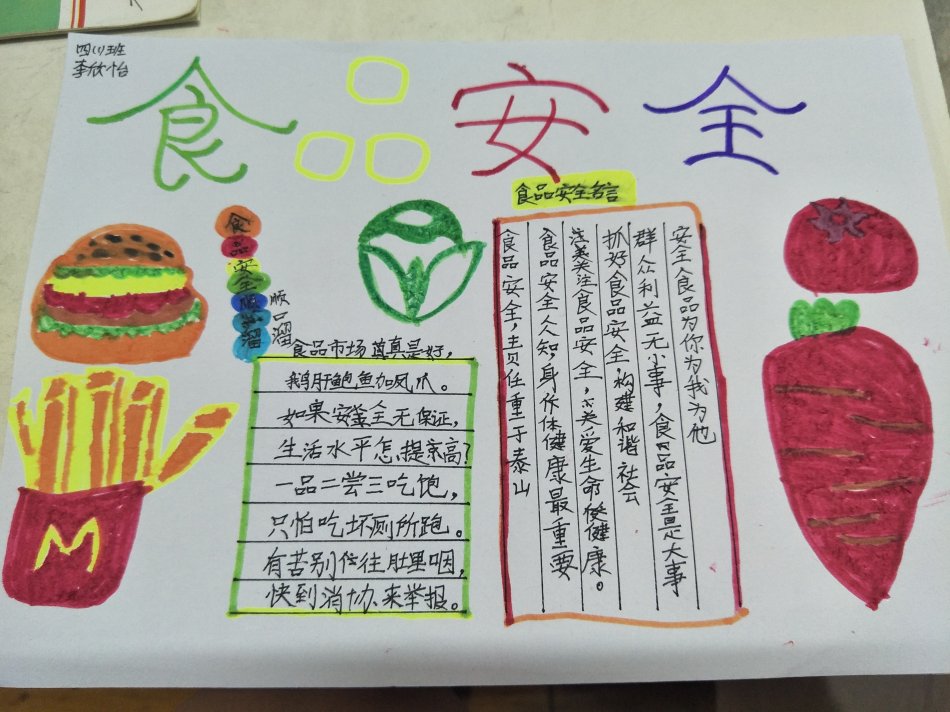 四(1)班
李欣怡
食品安全
食品安全名言
食品安全顺口溜
顺口溜
食品市场真是好，
鹅肝鲍鱼加凤爪。
如果安全无保证，
生活水平怎提高？
一品二尝三吃饱，
只怕吃坏厕所跑。
有苦别往肚里咽，
快到消协来举报。
安全食品为你为我为他
群众利益无小事，食品安全是大事
抓好食品安全，构建和谐社会
关注食品安全，关爱生命健康。
食品安全人人知，身体健康最重要
食品安全，责任重于泰山
M